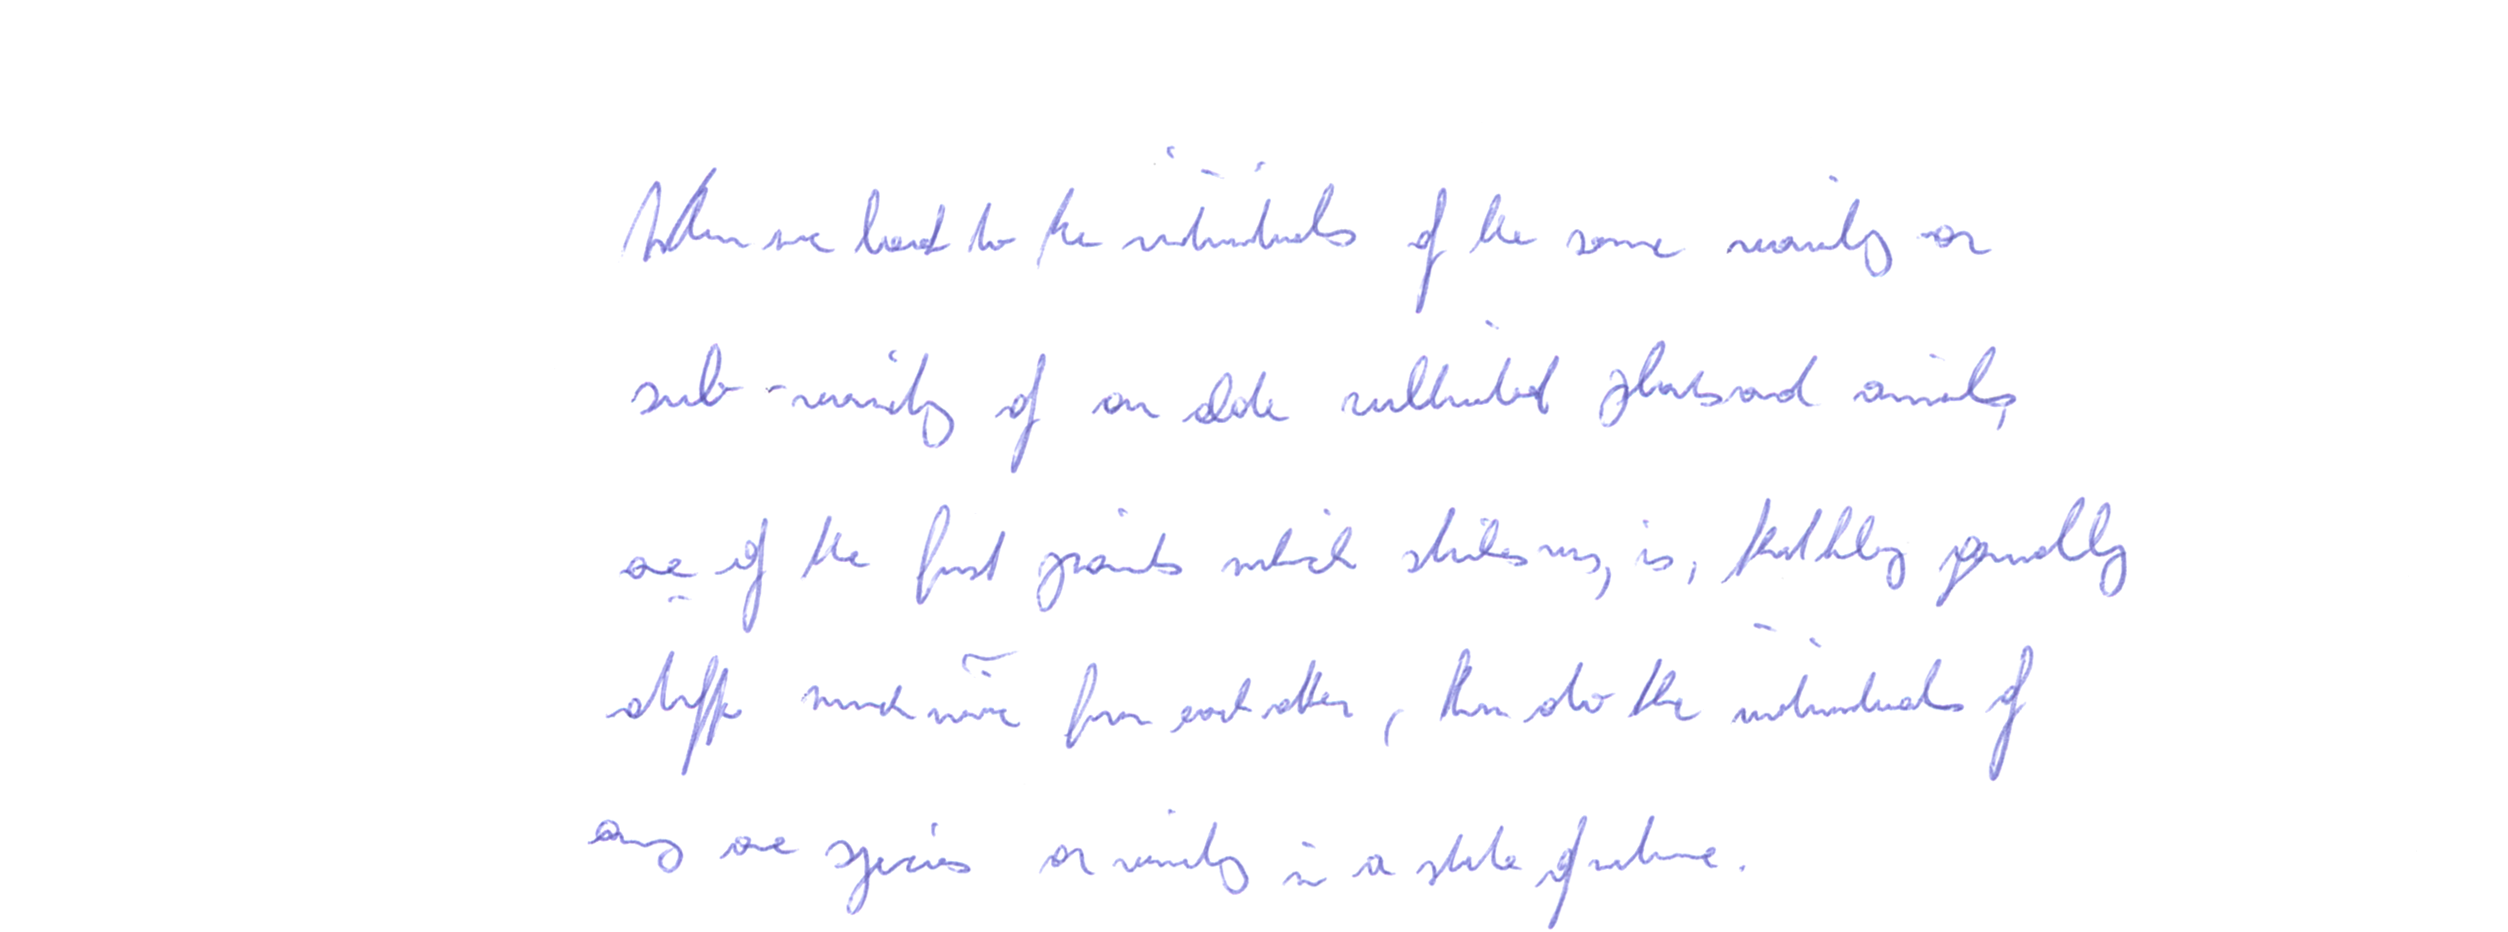 When we look to the individuals of the same variety or
sub-variety of our older cultivated plants and animals,
one of the first points which strikes us, is, that they generally
differ much more from each other, than do the individuals of
any one species or variety in a state of nature.